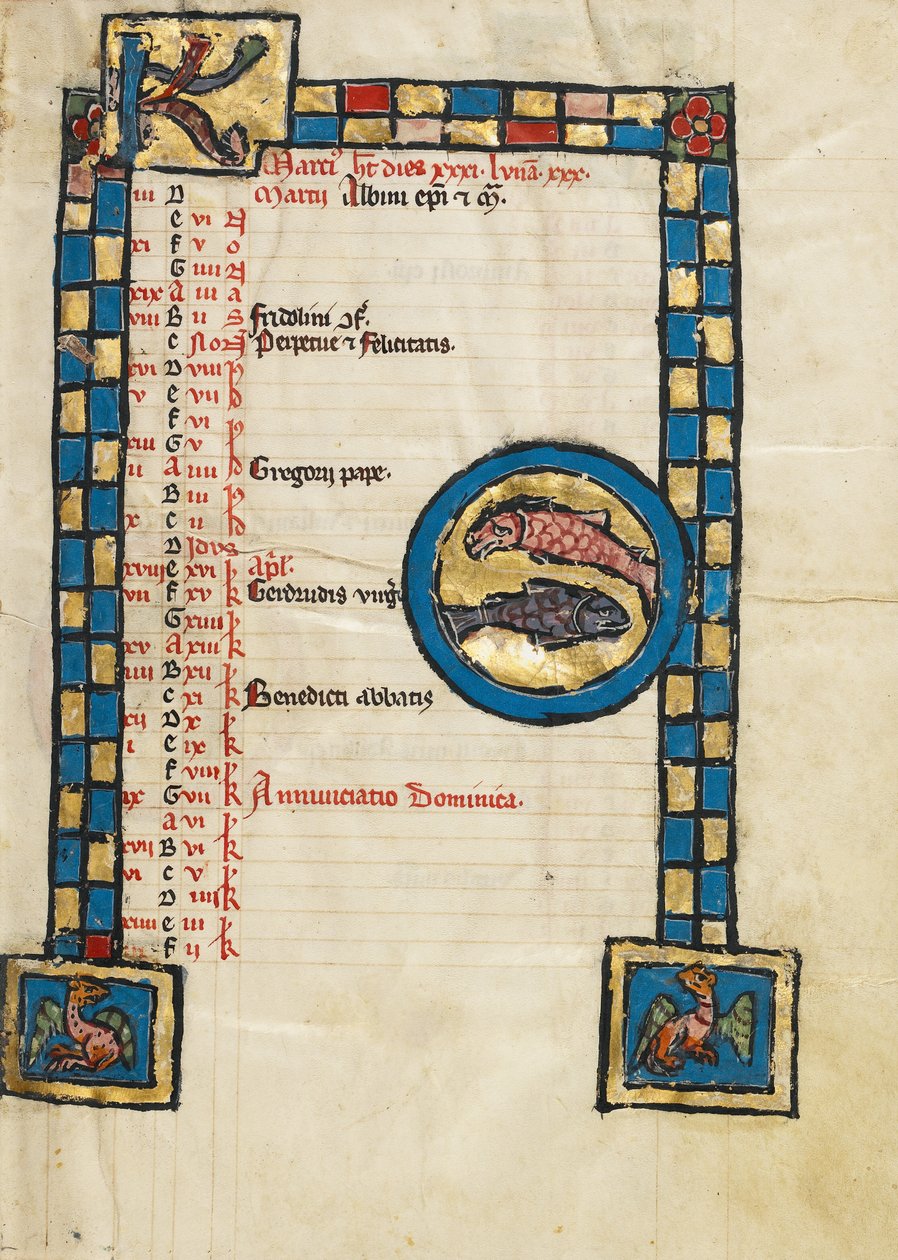 K
Marci⁹ ht̄ dies xxxi. luna xxx.
iii D Martij Albini epi ⁊ m̄.
e vi N
xi f v o
G iiii N
xix A iii a
viii B ii s fridolini ꝯf.
c No N Perpetue ⁊ felicitatis.
xvi D viii p
v e vii d
f vi p
xiii G v
ii A iiii d Gregorij pape.
B iii p
x c ii d
D Idvs
xviii e xvi k apl.
vii f xv k Gerdrudis virg
G xiiii k
xv A xiii k
iiii B xii k
c xi k Benedicti abbatis
xii D x k
i e ix k
f viii k
ix G vii k Annunciatio Dominica.
A vi k
xvii B vi k
vi c v k
D iiii k
xiiii e iii k
f ii k